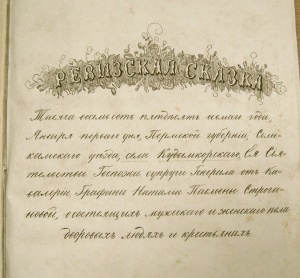 РЕВИЗСКАЯ СКАЗКА
Тысяча восемьсотъ пятдесятъ осьмаго года,
Января перваго дня, Пермской губерніи, Соли-
камскаго уѣзда, села Кудымкорскаго, Ея Сія-
тельства Госпожи супруги Генерала отъ Ка-
валеріи Графини Наталіи Павловны Строга-
новой, о состоящихъ мужескаго и женскаго пола
дворовыхъ людяхъ и крестьянахъ